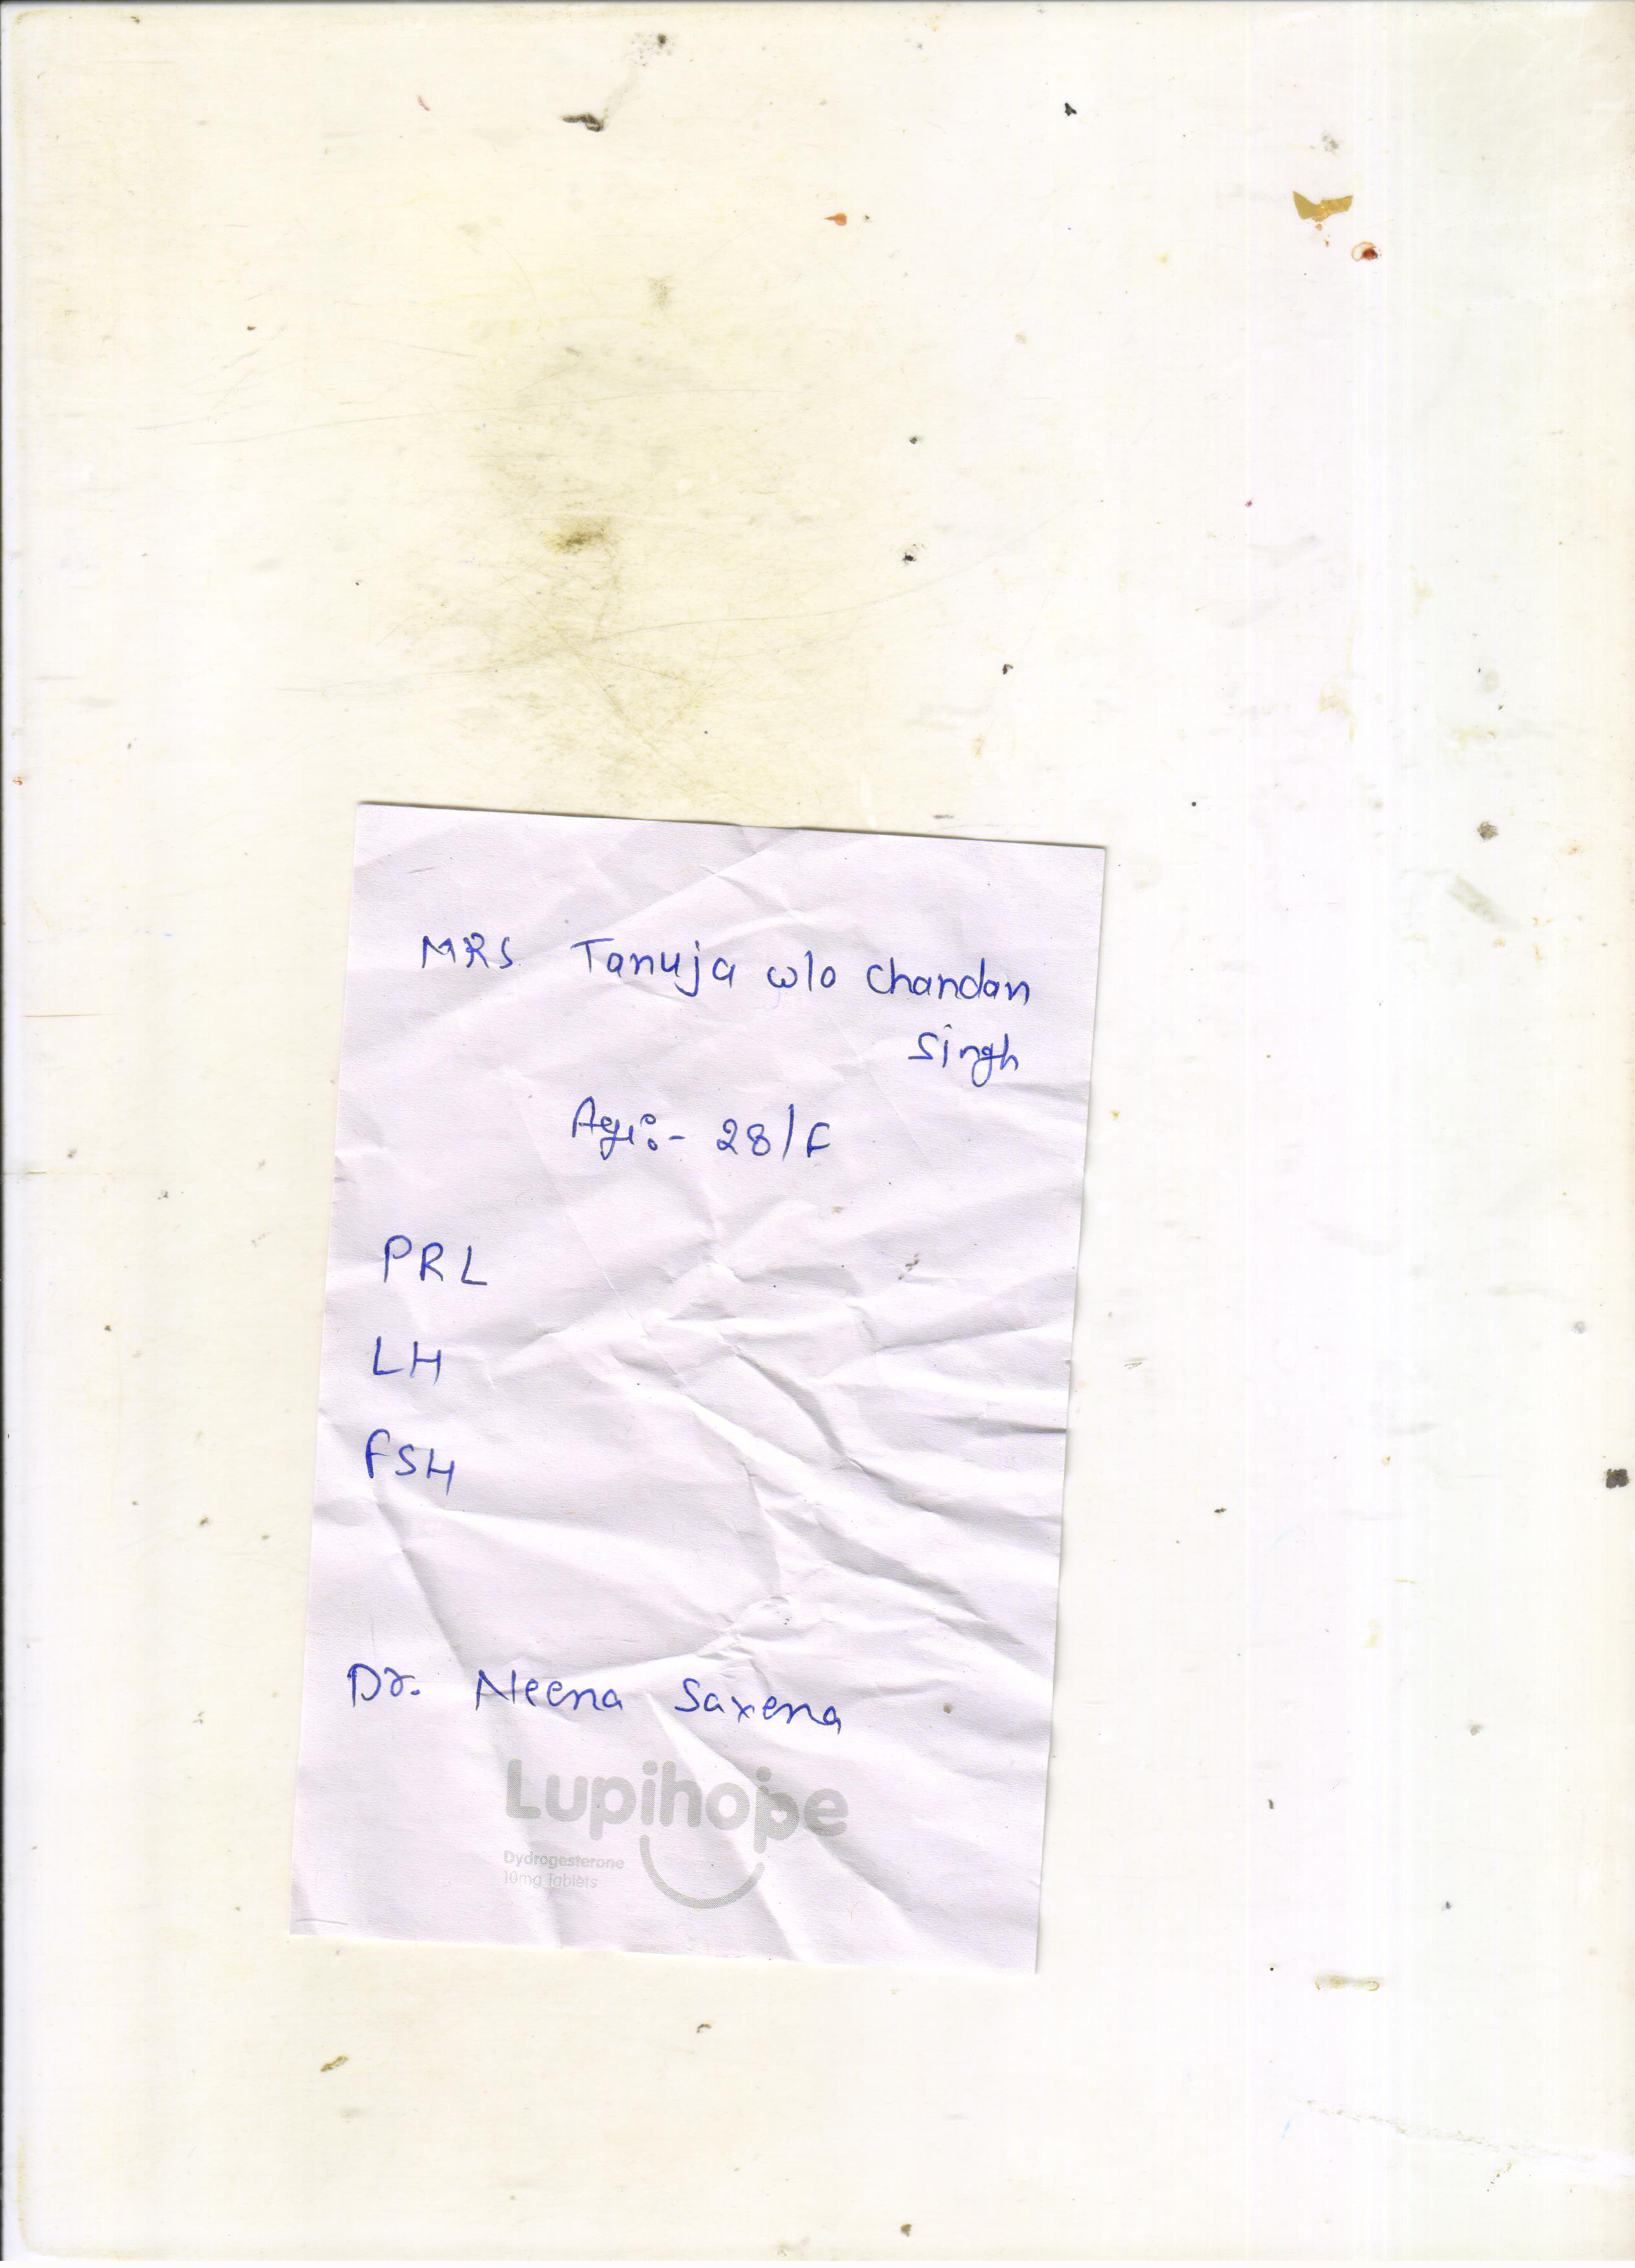 MRS. Tanuja w/o Chandan
Singh
Age:- 28/F
PRL
LH
FSH
Dr. Neena Saxena
Lupihope
Dydrogesterone
10mg Tablets